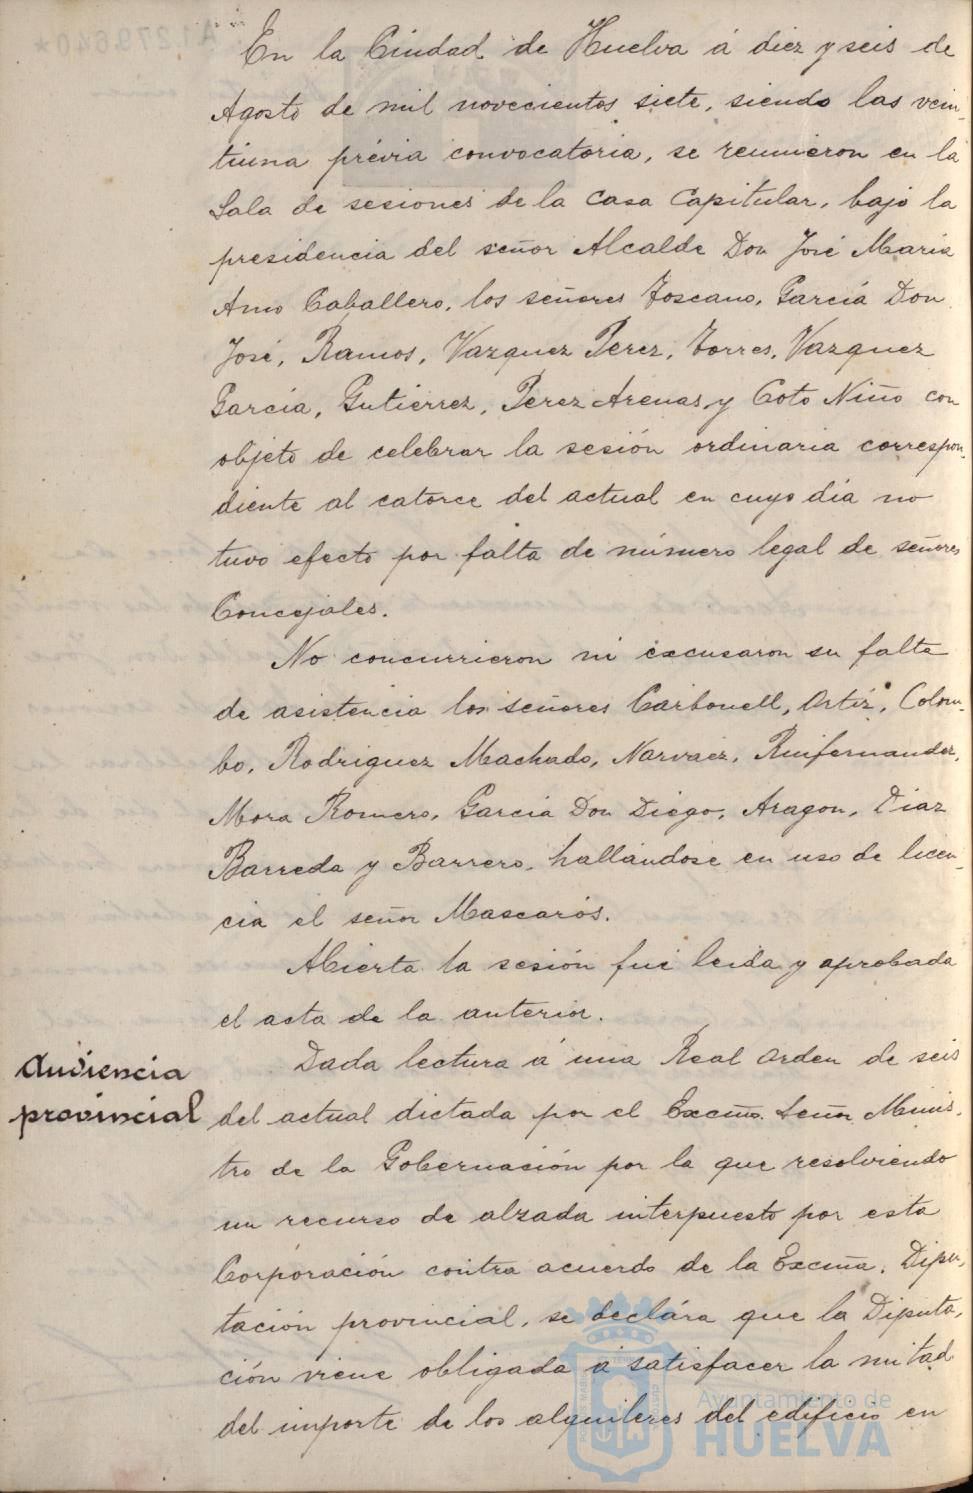 En la Ciudad de Huelva á diez y seis de
Agosto de mil novecientos siete, siendo las vein-
tiuna prévia convocatoria, se reunieron en la
Sala de sesiones de la Casa Capitular, bajo la
presidencia del señor Alcalde Don José Maria
Amo Caballero, los señores Toscano, García Don
José, Ramos, Vazquez Perez, Torres, Vazquez
García, Gutiérrez, Perez Arenas y Coto Niño con
objeto de celebrar la sesión ordinaria correspon-
diente al catorce del actual en cuyo dia no
tuvo efecto por falta de número legal de señores
Concejales.
No concurrieron ni excusaron su falta
de asistencia los señores Carbonell, Ortiz, Colom-
bo, Rodriguez Machado, Narvaez, Ruifernandez,
Mora Romero, Garcia Don Diego, Aragon, Diaz
Barreda y Barrero, hallándose en uso de licen-
cia el señor Mascarós.
Abierta la sesión fué leida y aprobada
el acta de la anterior.
Audiencia
provincial
Dada lectura á una Real orden de seis
del actual dictada por el Excmo. Señor Minis-
tro de la Gobernación por la que resolviendo
un recurso de alzada interpuesto por esta
Corporación contra acuerdo de la Excma. Dipu-
tación provincial, se declára que la Diputa-
ción viene obligada á satisfacer la mitad
del importe de los alquileres del edificio en
Ayuntamiento de
HUELVA